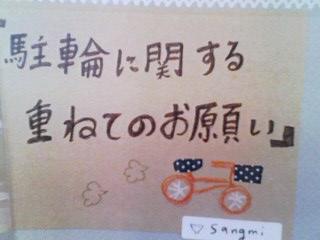 『駐輪に関する
重ねてのお願い』
▽ Sangmi